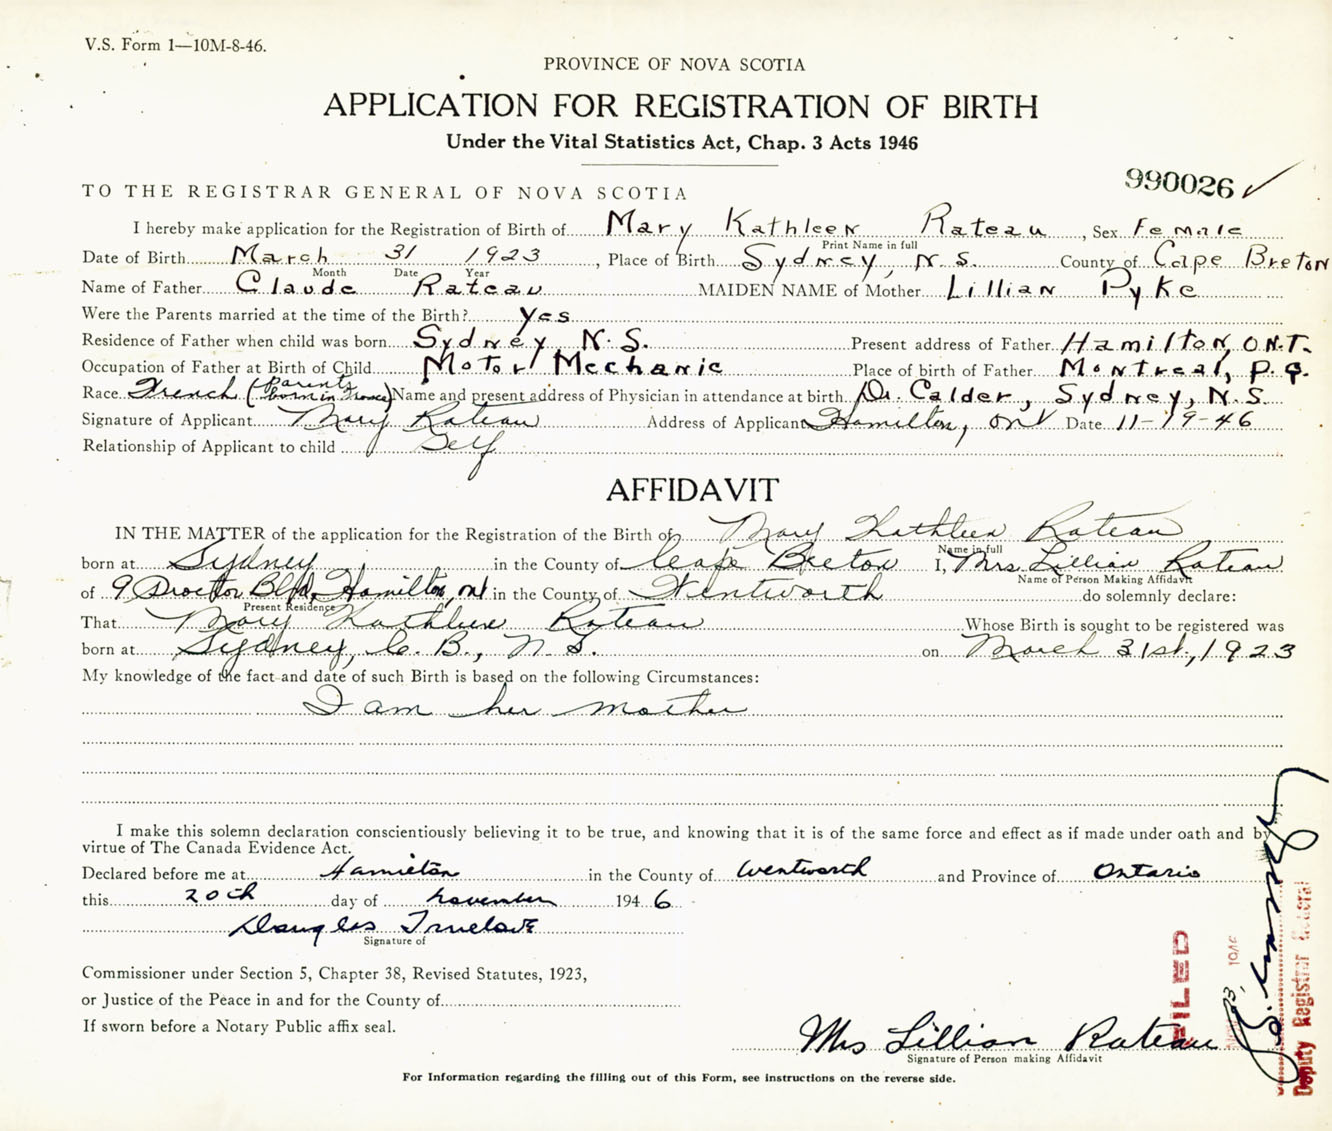 V.S. Form 1—10M-8-46.
PROVINCE OF NOVA SCOTIA
APPLICATION FOR REGISTRATION OF BIRTH
Under the Vital Statistics Act, Chap. 3 Acts 1946
990026 ✓
TO THE REGISTRAR GENERAL OF NOVA SCOTIA
I hereby make application for the Registration of Birth of Mary Kathleen Rateau, Sex Female
Print Name in full
Date of Birth March 31 1923, Place of Birth Sydney, N.S. County of Cape Breton
Month Date Year
Name of Father Claude Rateau MAIDEN NAME of Mother Lillian Pyke
Were the Parents married at the time of the Birth? Yes
Residence of Father when child was born Sydney N.S. Present address of Father Hamilton, ONT.
Occupation of Father at Birth of Child Motor Mechanic Place of birth of Father Montreal, P.Q.
Race French (Parents born in France) Name and present address of Physician in attendance at birth Dr. Calder, Sydney, N.S.
Signature of Applicant Mary Rateau Address of Applicant Hamilton, Ont Date 11-19-46
Relationship of Applicant to child Self
AFFIDAVIT
IN THE MATTER of the application for the Registration of the Birth of Mary Kathleen Rateau
Name in full
born at Sydney in the County of Cape Breton I, Mrs. Lillian Rateau
Name of Person Making Affidavit
of 9 Proctor Blvd, Hamilton, Ont in the County of Wentworth do solemnly declare:
Present Residence
That Mary Kathleen Rateau Whose Birth is sought to be registered was
born at Sydney, C. B., N. S. on March 31st, 1923
My knowledge of the fact and date of such Birth is based on the following Circumstances:
I am her mother
I make this solemn declaration conscientiously believing it to be true, and knowing that it is of the same force and effect as if made under oath and by
virtue of The Canada Evidence Act.
Declared before me at Hamilton in the County of Wentworth and Province of Ontario
this 20th day of November 1946
Douglas Truelove
Signature of
Commissioner under Section 5, Chapter 38, Revised Statutes, 1923,
or Justice of the Peace in and for the County of
If sworn before a Notary Public affix seal.
Mrs Lillian Rateau
Signature of Person making Affidavit
For Information regarding the filling out of this Form, see instructions on the reverse side.
FILED
1946
Deputy Registrar General